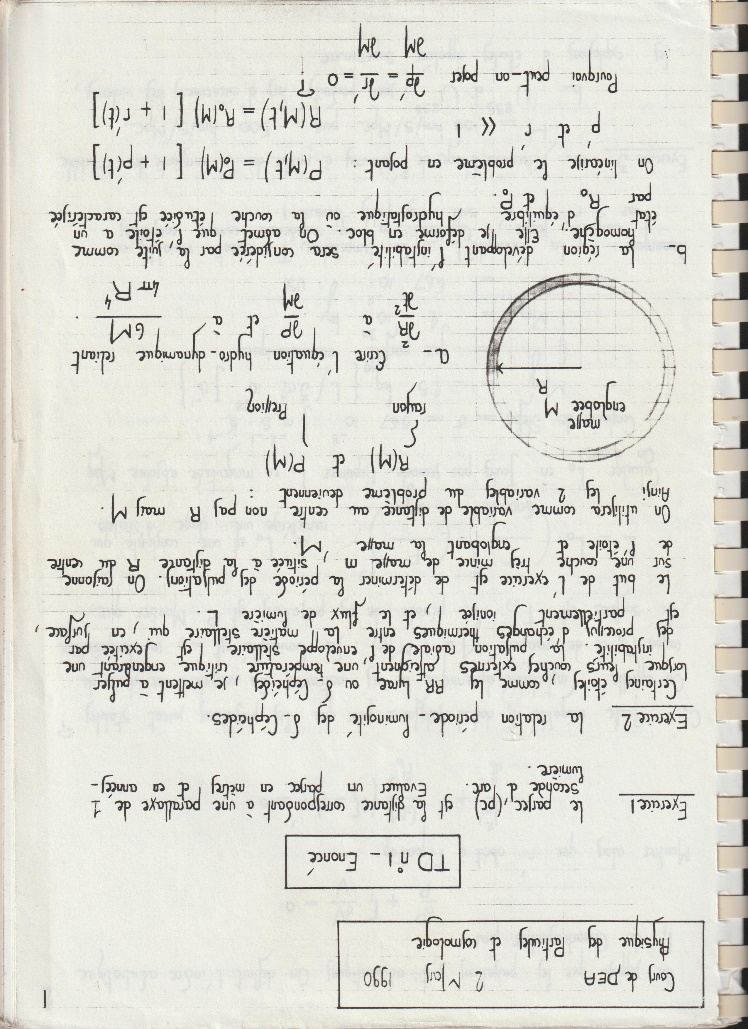 1
Cours de DEA 2 Mars 1990
Physique des Particules et cosmologie.
TD n°1 - Enoncé
Exercice 1 le parsec (pc) est la distance correspondant à une parallaxe de 1
seconde d'arc. Evaluer un parsec en mètres et en années-
lumière.
Exercice 2 la relation période-luminosité des δ-Céphéides.
Certaines étoiles, comme les RR Lyrae ou δ-Céphéides, se mettent à pulser
lorsque leurs couches externes atteignent une température critique engendrant une
instabilité. la pulsation radiale de l'enveloppe stellaire est excitée par
des processus d'échanges thermiques entre la matière stellaire qui, en surface,
est partiellement ionisée, et le flux de lumière L.
le but de l'exercice est de déterminer la période des pulsations. On raisonne
sur une couche très mince de masse m, située à la distante R du centre
de l'étoile et englobant la masse M.
On utilisera comme variable de distance au centre non pas R mais M.
Ainsi les 2 variables du problème deviennent :
R(M) et P(M)
rayon Pression
masse
englobée M
R
a- Ecrire l'équation hydro-dynamique reliant
∂²R/∂t² à ∂P/∂M et à GM/4πR⁴ .
b. la région développant l'instabilité sera considérée par la suite comme
homogène. Elle se déforme en bloc. On admet que l'étoile a un
état d'équilibre hydrostatique où la couche étudiée est caractérisée
par R₀ et P₀.
On linéarise le problème en posant : P(M,t) = P₀(M) [1 + p(t)]
p et r << 1
R(M,t) = R₀(M) [1 + r(t)]
Pourquoi peut-on poser ∂p/∂M = ∂r/∂M = 0 ?